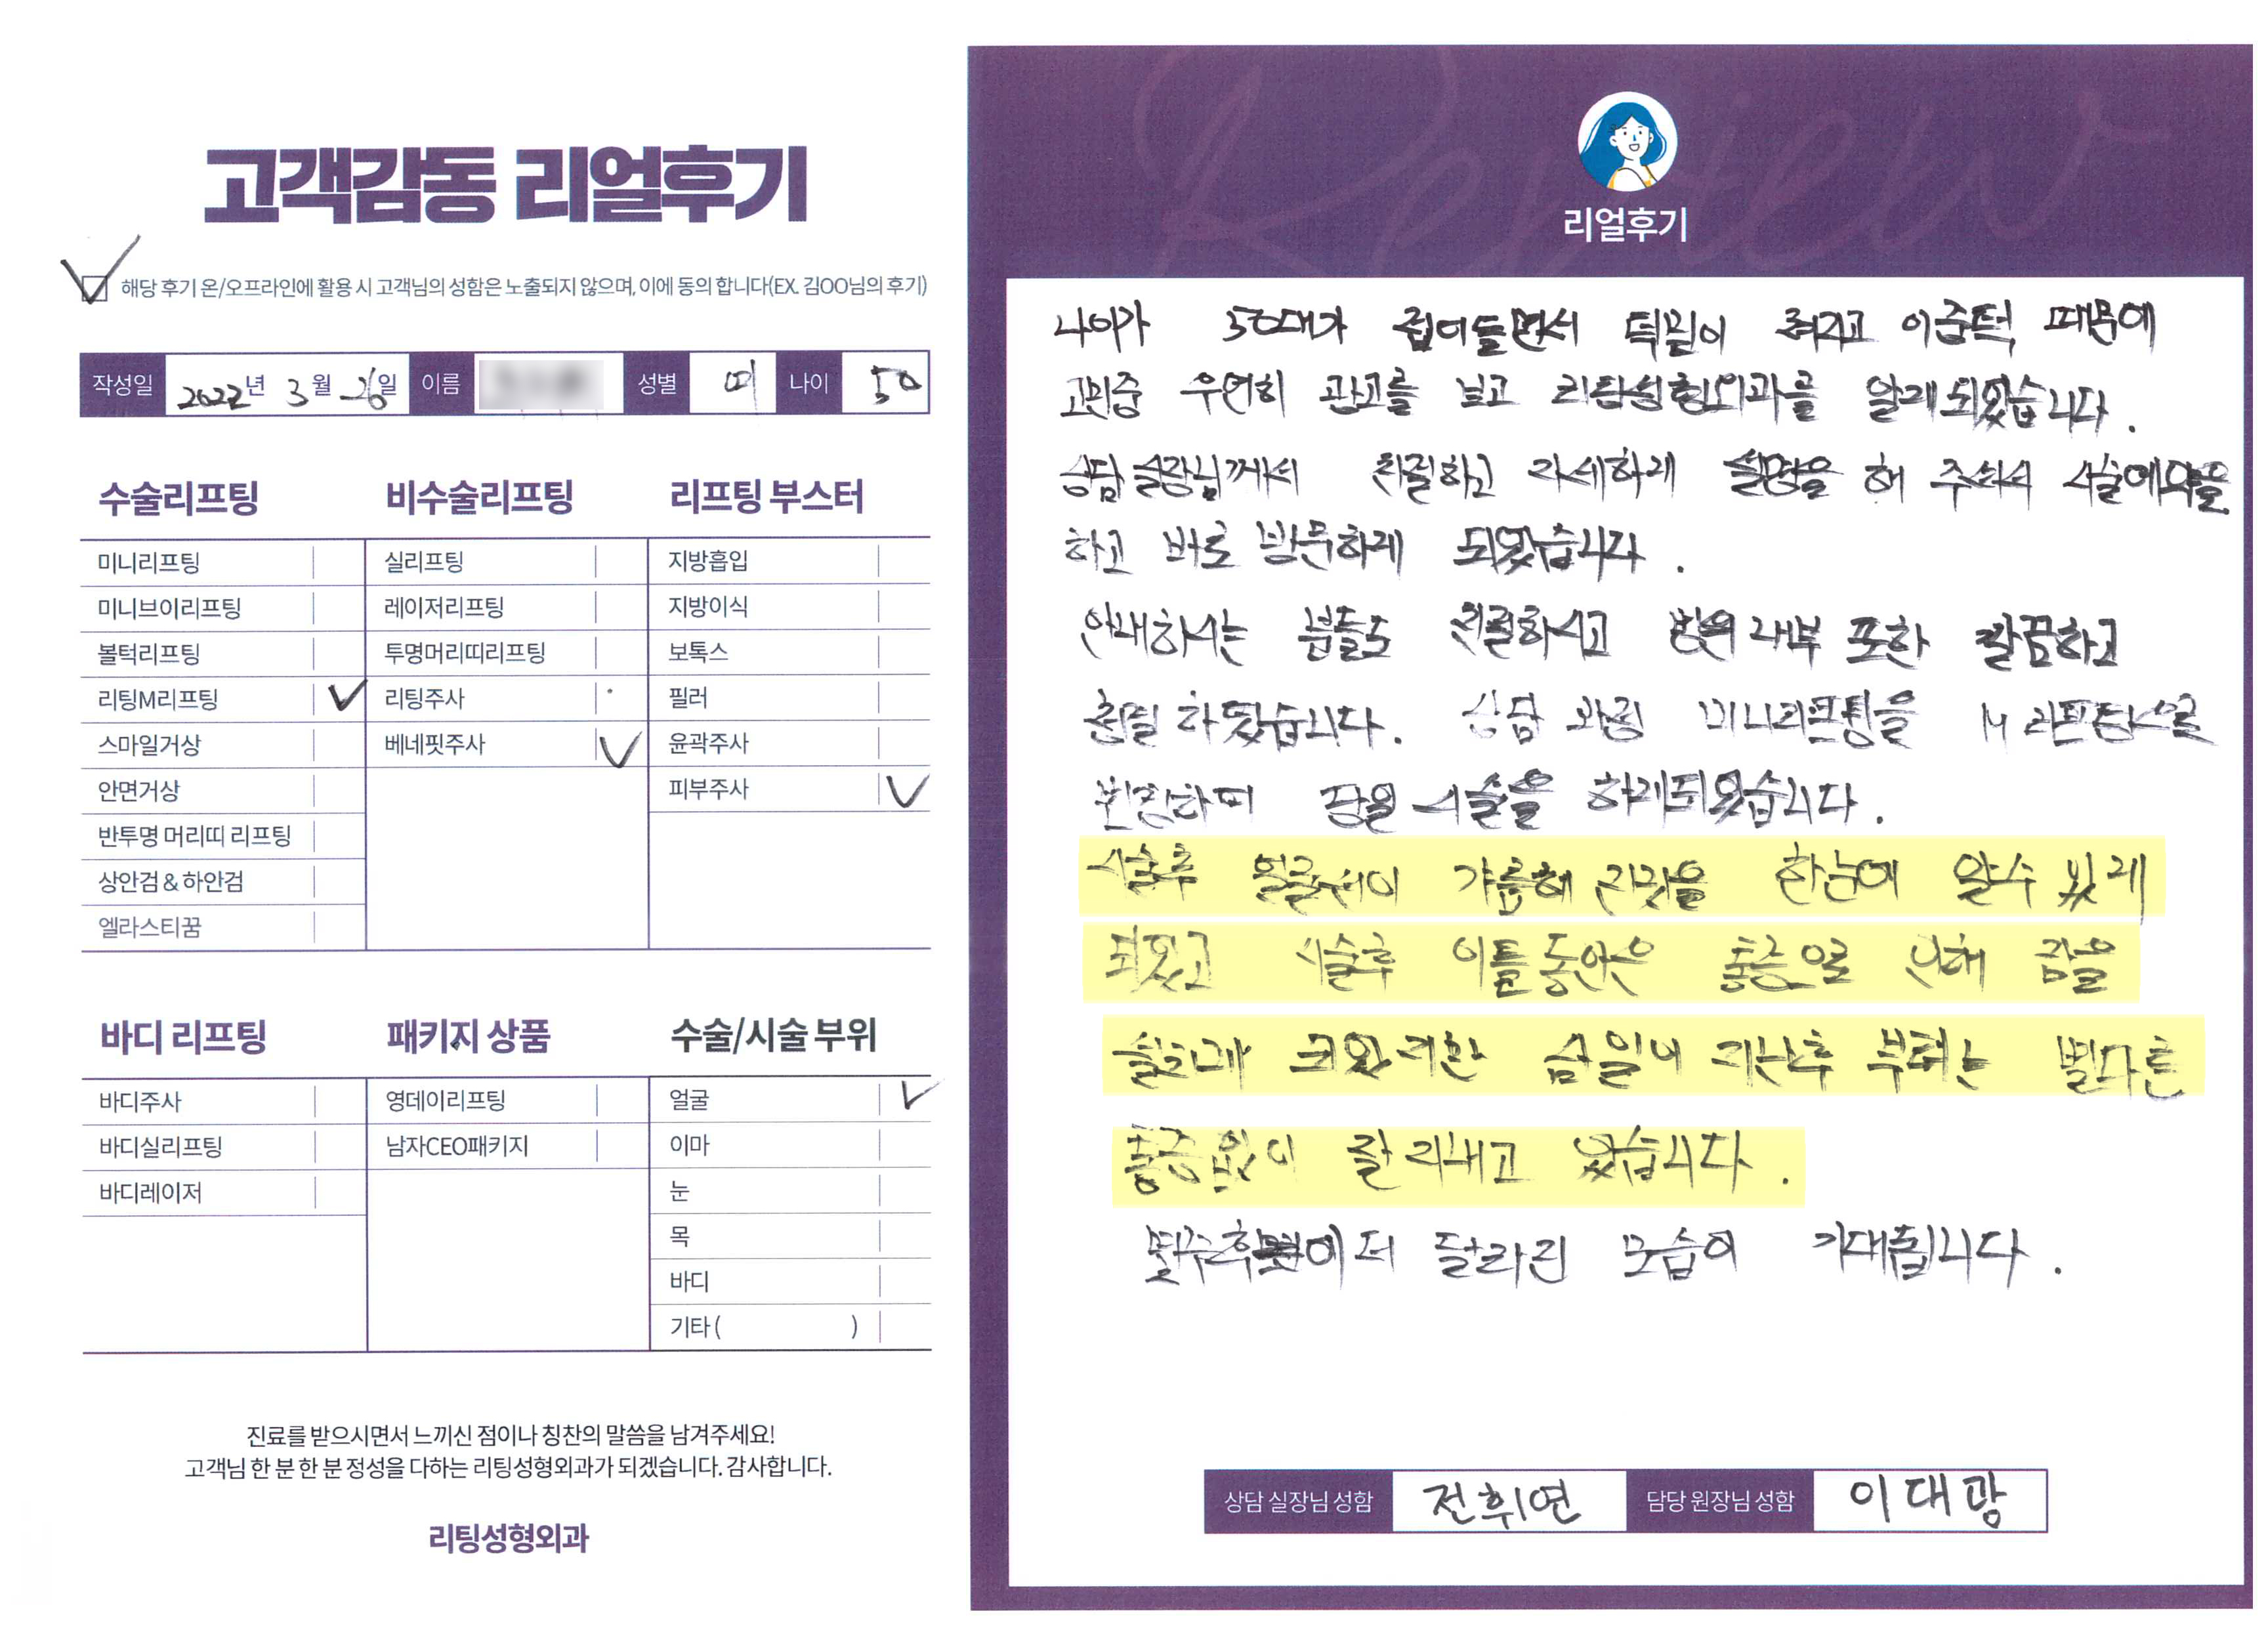 고객감동 리얼후기
해당 후기 온/오프라인에 활용 시 고객님의 성함은 노출되지 않으며, 이에 동의 합니다(EX. 김OO님의 후기)
작성일 2022년 3월 26일 이름 성별 여 나이 50
수술리프팅
미니리프팅
미니브이리프팅
볼턱리프팅
리팅M리프팅
스마일거상
안면거상
반투명 머리띠 리프팅
상안검 & 하안검
엘라스티꿈
비수술리프팅
실리프팅
레이저리프팅
투명머리띠리프팅
리팅주사
베네핏주사
리프팅 부스터
지방흡입
지방이식
보톡스
필러
윤곽주사
피부주사
바디 리프팅
바디주사
바디실리프팅
바디레이저
패키지 상품
영데이리프팅
남자CEO패키지
수술/시술 부위
얼굴
이마
눈
목
바디
기타 ( )
진료를 받으시면서 느끼신 점이나 칭찬의 말씀을 남겨주세요!
고객님 한 분 한 분 정성을 다하는 리팅성형외과가 되겠습니다. 감사합니다.
리팅성형외과
Review
리얼후기
나이가 50대가 접어들면서 턱밑이 쳐지고 이중턱 때문에
고민중 우연히 광고를 보고 리팅성형외과를 알게되었습니다.
상담실장님께서 친절하고 자세하게 설명을 해 주셔서 시술예약을
하고 바로 방문하게 되었습니다.
안내하시는 분들도 친절하시고 병원내부 포함 깔끔하고
친절 하였습니다. 상담 과정 미니리프팅을 M리프팅으로
변경하며 당일 시술을 하게되었습니다.
시술후 얼굴선이 갸름해 진것을 한눈에 알수 있게
되었고 시술후 이틀동안은 통증으로 인해 잠을
설치게 되었지만 삼일이 지난후 부터는 별다른
통증없이 잘지내고 있습니다.
더 달라진 모습이 기대됩니다.
상담 실장님 성함 전휘연 담당 원장님 성함 이대광